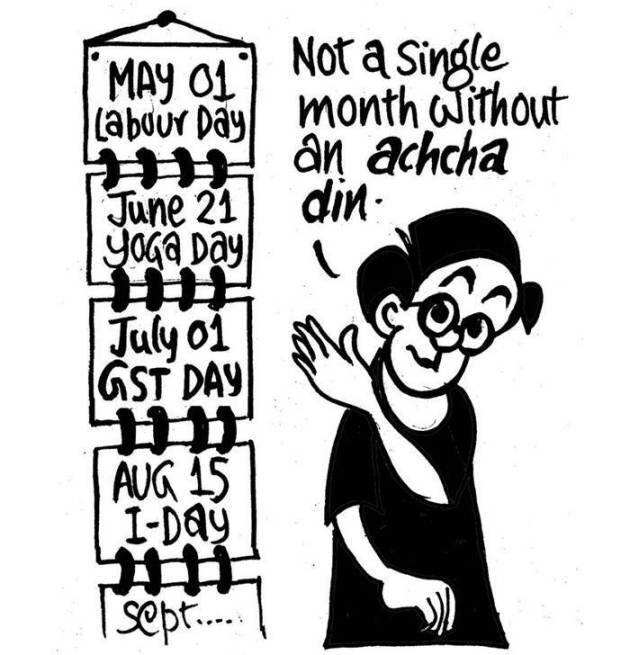 MAY 01
Labour Day
June 21
YOGA Day
July 01
GST DAY
AUG 15
I-Day
Sept.....
Not a single
month without
an achcha
din.